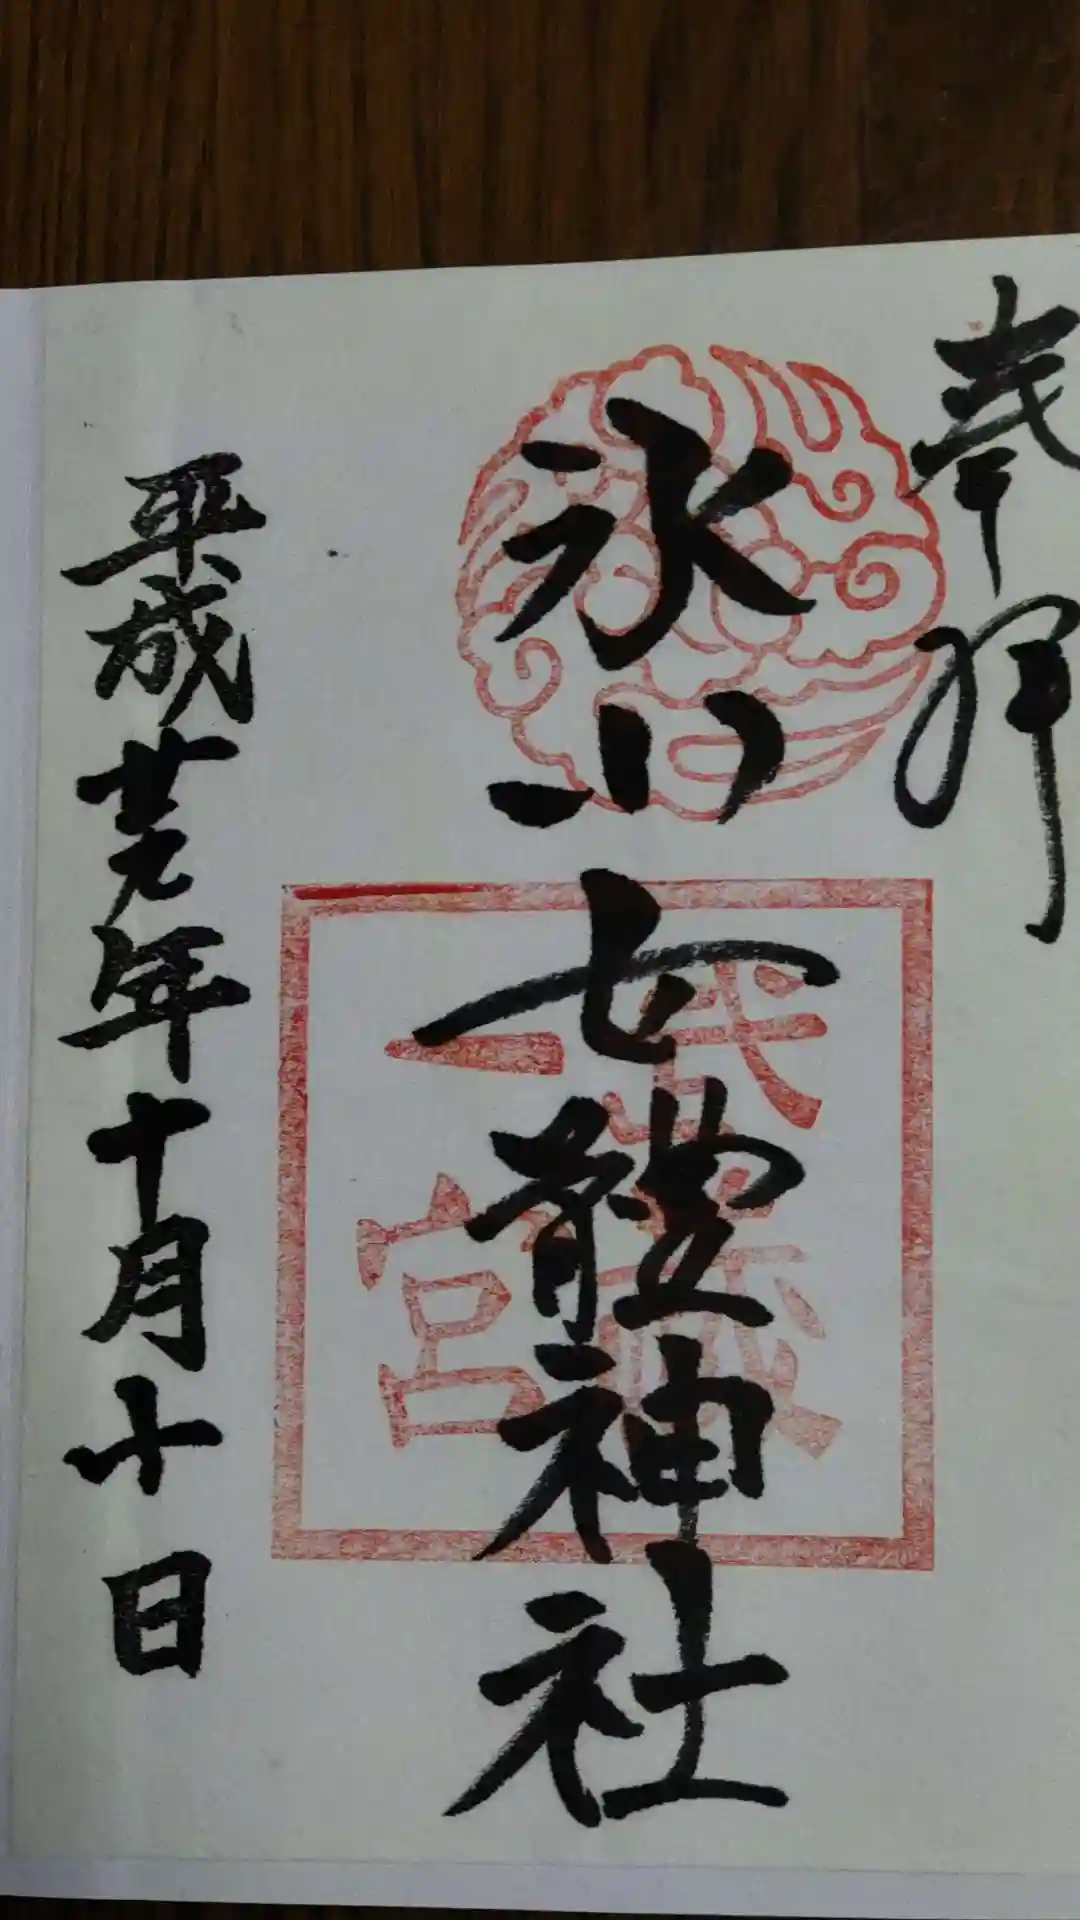 奉拝
氷川女體神社
武蔵
一宮
平成廿九年十月十日